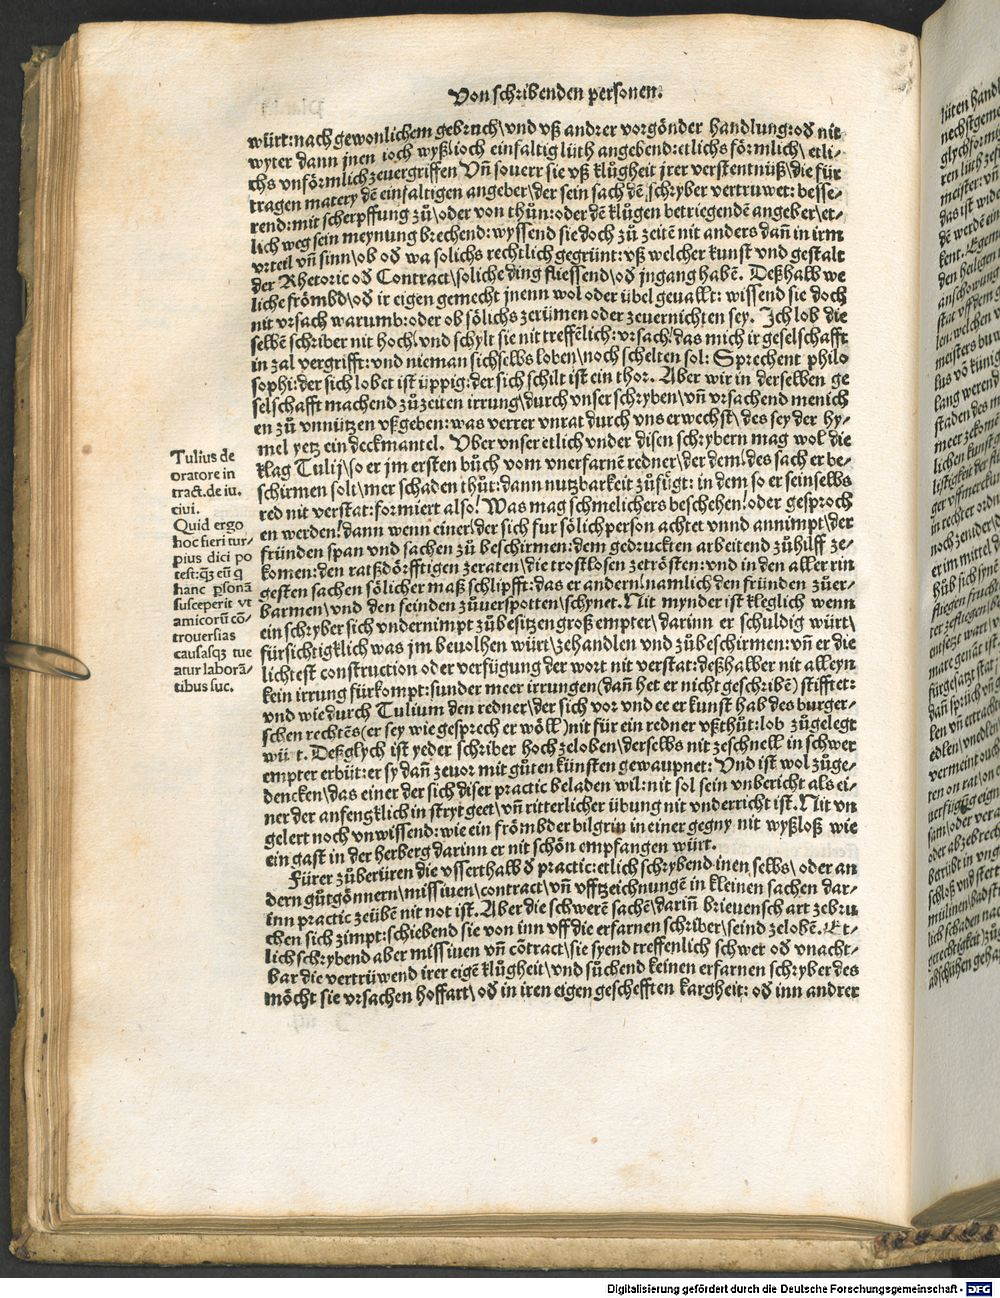 Von schribenden personen.
würt: nach gewonlichem gebruch\ vnd vß andrer vorgönder handlung: oď nit
wyter dann jnen ioch wyßt\ ioch einfaltig lüth angebend: etlichs förmlich\ etli-
chs vnförmlich zeuergriffen Vñ souerr sie vß klůgheit jrer verstentnüß\ die für
tragen matery dē einfaltigen angeber\ der sein sach dē schryber vertruwet: besse-
rend: mit scherpffung zů\ oder von thůn: oder dē klůgen betriegendē angeber\ et-
lich weg sein meynung brechend: wyssend sie doch zů zeitē nit anders dañ in irm
vrteil vñ sinn\ ob oď wa solichs rechtlich gegrünt: vß welcher kunst vnd gestalt
der Rhetoric oď Contract\ soliche ding fliessend\ oď jngang habē. Deßhalb we
liche frömbd\ oď ir eigen gemecht jnenn wol oder übel geuallt: wissend sie doch
nit vrsach warumb: oder ob sölichs zerümen oder zeuernichten sey. Ich lob die
selbē schriber nit hoch\ vnd schylt sie nit treffēlich: vrsach\ das mich ir geselschafft
in zal vergrifft: vnd nieman sich selbs loben\ noch schelten sol: Sprechent philo
sophi: der sich lobet ist üppig: der sich schilt ist ein thor. Aber wir in derselben ge
selschafft machend zů zeiten irrung\ durch vnser schryben\ vñ vrsachend menich
en zů vnnützen vßgeben: was verrer vnrat durch vns erwechst\ des sey der hy-
mel yetz ein deckmantel. Vber vnser etlich vnder disen schrybern mag wol die
klag Tulij\ so er jm ersten bůch vom vnerfarnē redner\ der dem\ des sach er be-
schirmen solt\ mer schaden thůt: dann nutzbarkeit zůfůgt: in dem so er sein selbs
red nit verstat: formiert also! Was mag schmelichers beschehen! oder gesproch
en werden! dann wenn einer\ der sich fur sölich person achtet vnnd annimpt\ der
fründen span vnd sachen zů beschirmen: dem gedruckten arbeitend zů hilff ze-
komen: den ratßdörfftigen zeraten\ die trostlosen zetrösten: vnd in den aller rin
gesten sachen sölicher maß schlipfft: das er andern\ namlich den fründen zů er-
barmen\ vnd den feinden zů verspotten\ schynet. Nit mynder ist kleglich wenn
ein schryber sich vndernimpt zů besitzen groß empter\ darinn er schuldig würt\
fürsichtigklich was jm beuolhen würt\ zehandlen vnd zů beschirmen: vñ er die
lichtest construction oder verfügung der wort nit verstat: deßhalber nit alleyn
kein irrung fürkompt: sunder meer irrungen (dañ het er nicht geschribē) stifftet:
vnd wie durch Tulium den redner\ der sich vor vnd ee er kunst hab des burger-
schen rechtēs (er sey wie gesprech er wöll) nit für ein redner vßthůt: lob zů gelegt
würt. Deßglych ist yeder schriber hoch zeloben\ der selbs nit ze schnell in schwer
empter erbüt: er sy dañ zeuor mit gůten künsten gewaupnet: Vnd ist wol zů ge-
dencken\ das einer der sich diser practic beladen wil: nit sol sein vnbericht als ei-
ner der anfengklich in stryt geet\ vñ ritterlicher übung nit vnderricht ist. Nit vn
gelert noch vnwissend: wie ein frömbder bilgrin in einer gegny nit wyßloß wie
ein gast in der herberg darinn er nit schön empfangen würt.
Fürer zů berüren die vsserthalb ď practic: etlich schrybend inen selbs\ oder an
dern gůtgönnern\ missiuen\ contract\ vñ vfftzeichnungē in kleinen sachen dar-
inn practic zeübē nit not ist. Aber die schwerē sachē\ darinn̄ brieuensch art zebru
chen sich zimpt: schiebend sie von inn vff die erfarnen schriber\ seind zelobē. Et-
lich schrybend aber missiuen vñ cōtract\ sie syend treffenlich schwer oď vnacht-
bar die vertrüwend irer eigē klůgheit\ vnd sůchend keinen erfarnen schryber des
möcht sie vrsachen hoffart\ oď in iren eigen geschefften kargheit: oď inn andrer
Tulius de
oratore in
tract. de iu.
ciui.
Quid ergo
hoc fieri tur-
pius dici po
test: qꝫ eū q
hanc psonā
susceperit vt
amicorū cō-
trouersias
causasqꝫ tue
atur laborā-
tibus suc.
Digitalisierung gefördert durch die Deutsche Forschungsgemeinschaft - DFG